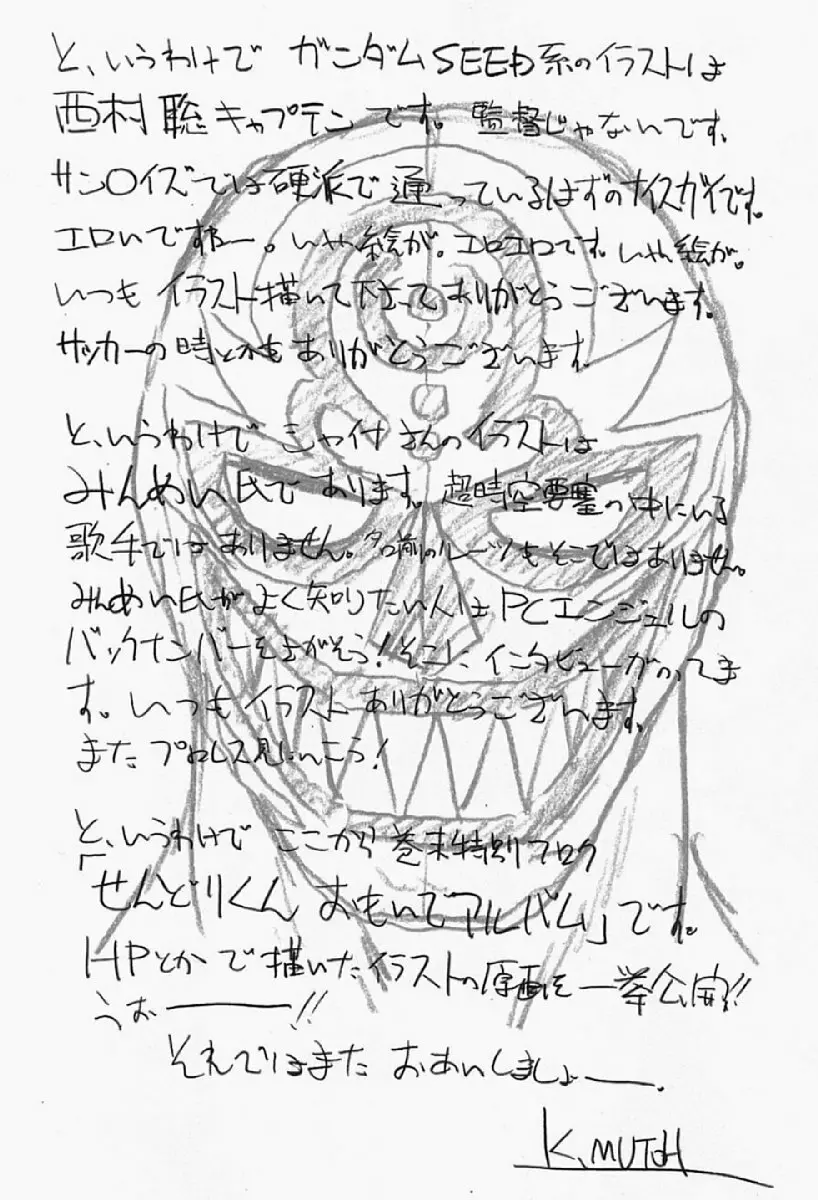 と、いうわけで ガンダムSEED系のイラストは
西村聡キャプテンです。監督じゃないです。
サン〇イズでは硬派で通っているはずのナイスガイです。
エロいですねー。いや絵が。エロエロです。いや絵が。
いつもイラスト描いて下さってありがとうございます。
サッカーの時とかもありがとうございます。
と、いうわけで シャイナさんのイラストは
みんめい氏で あります。超時空要塞の中にいる
歌手ではありません。名前のルーツもそこではありません。
みんめい氏がよく知りたい人はPCエンジェルの
バックナンバーをさがそう!そこにインタビューがのってま
す。いつもイラストありがとうございます。
またプロレス見にいこう!
と、いうわけで ここから 巻末特別フロク
「せんどりくん おもいでアルバム」です。
HPとかで描いたイラストの原画を一挙公開!!
うおーーー!!
それではまた おあいしましょー。
K.MUTOH